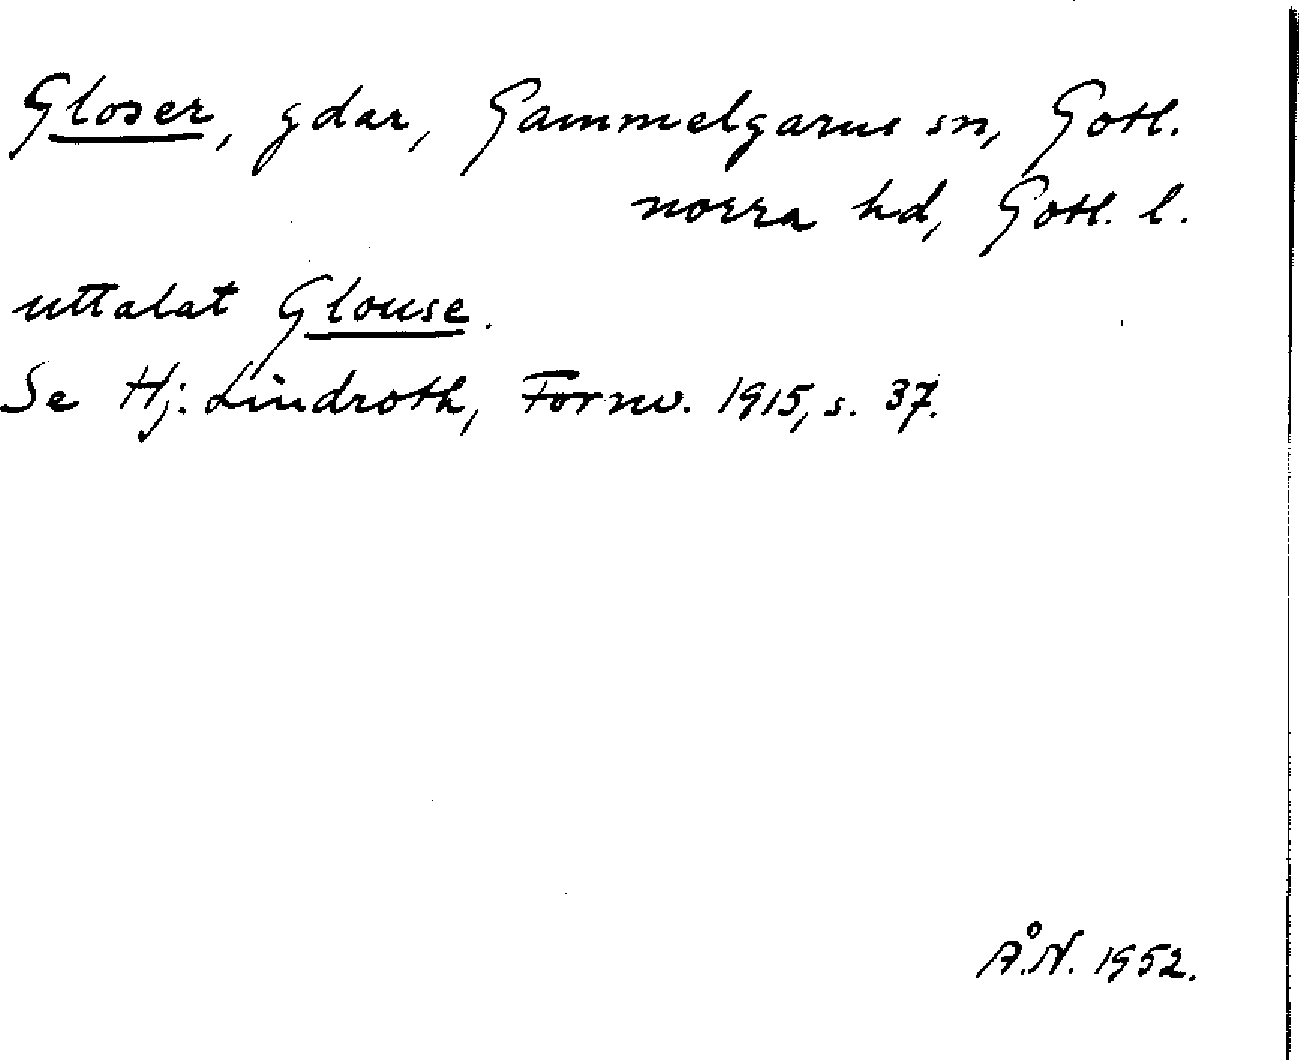 Gloser, gdar, Gammelgarns sn, Gotl.
norra hd, Gotl. l.
uttalat Glouse.
Se Hj. Lindroth, Fornv. 1915, s. 37.
Å.N. 1952.